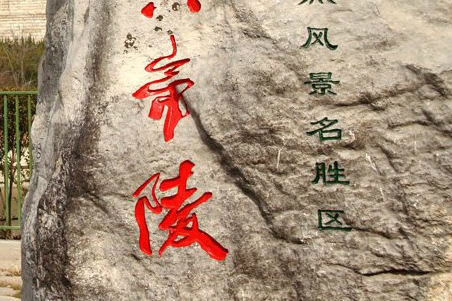 帝陵
风景名胜区